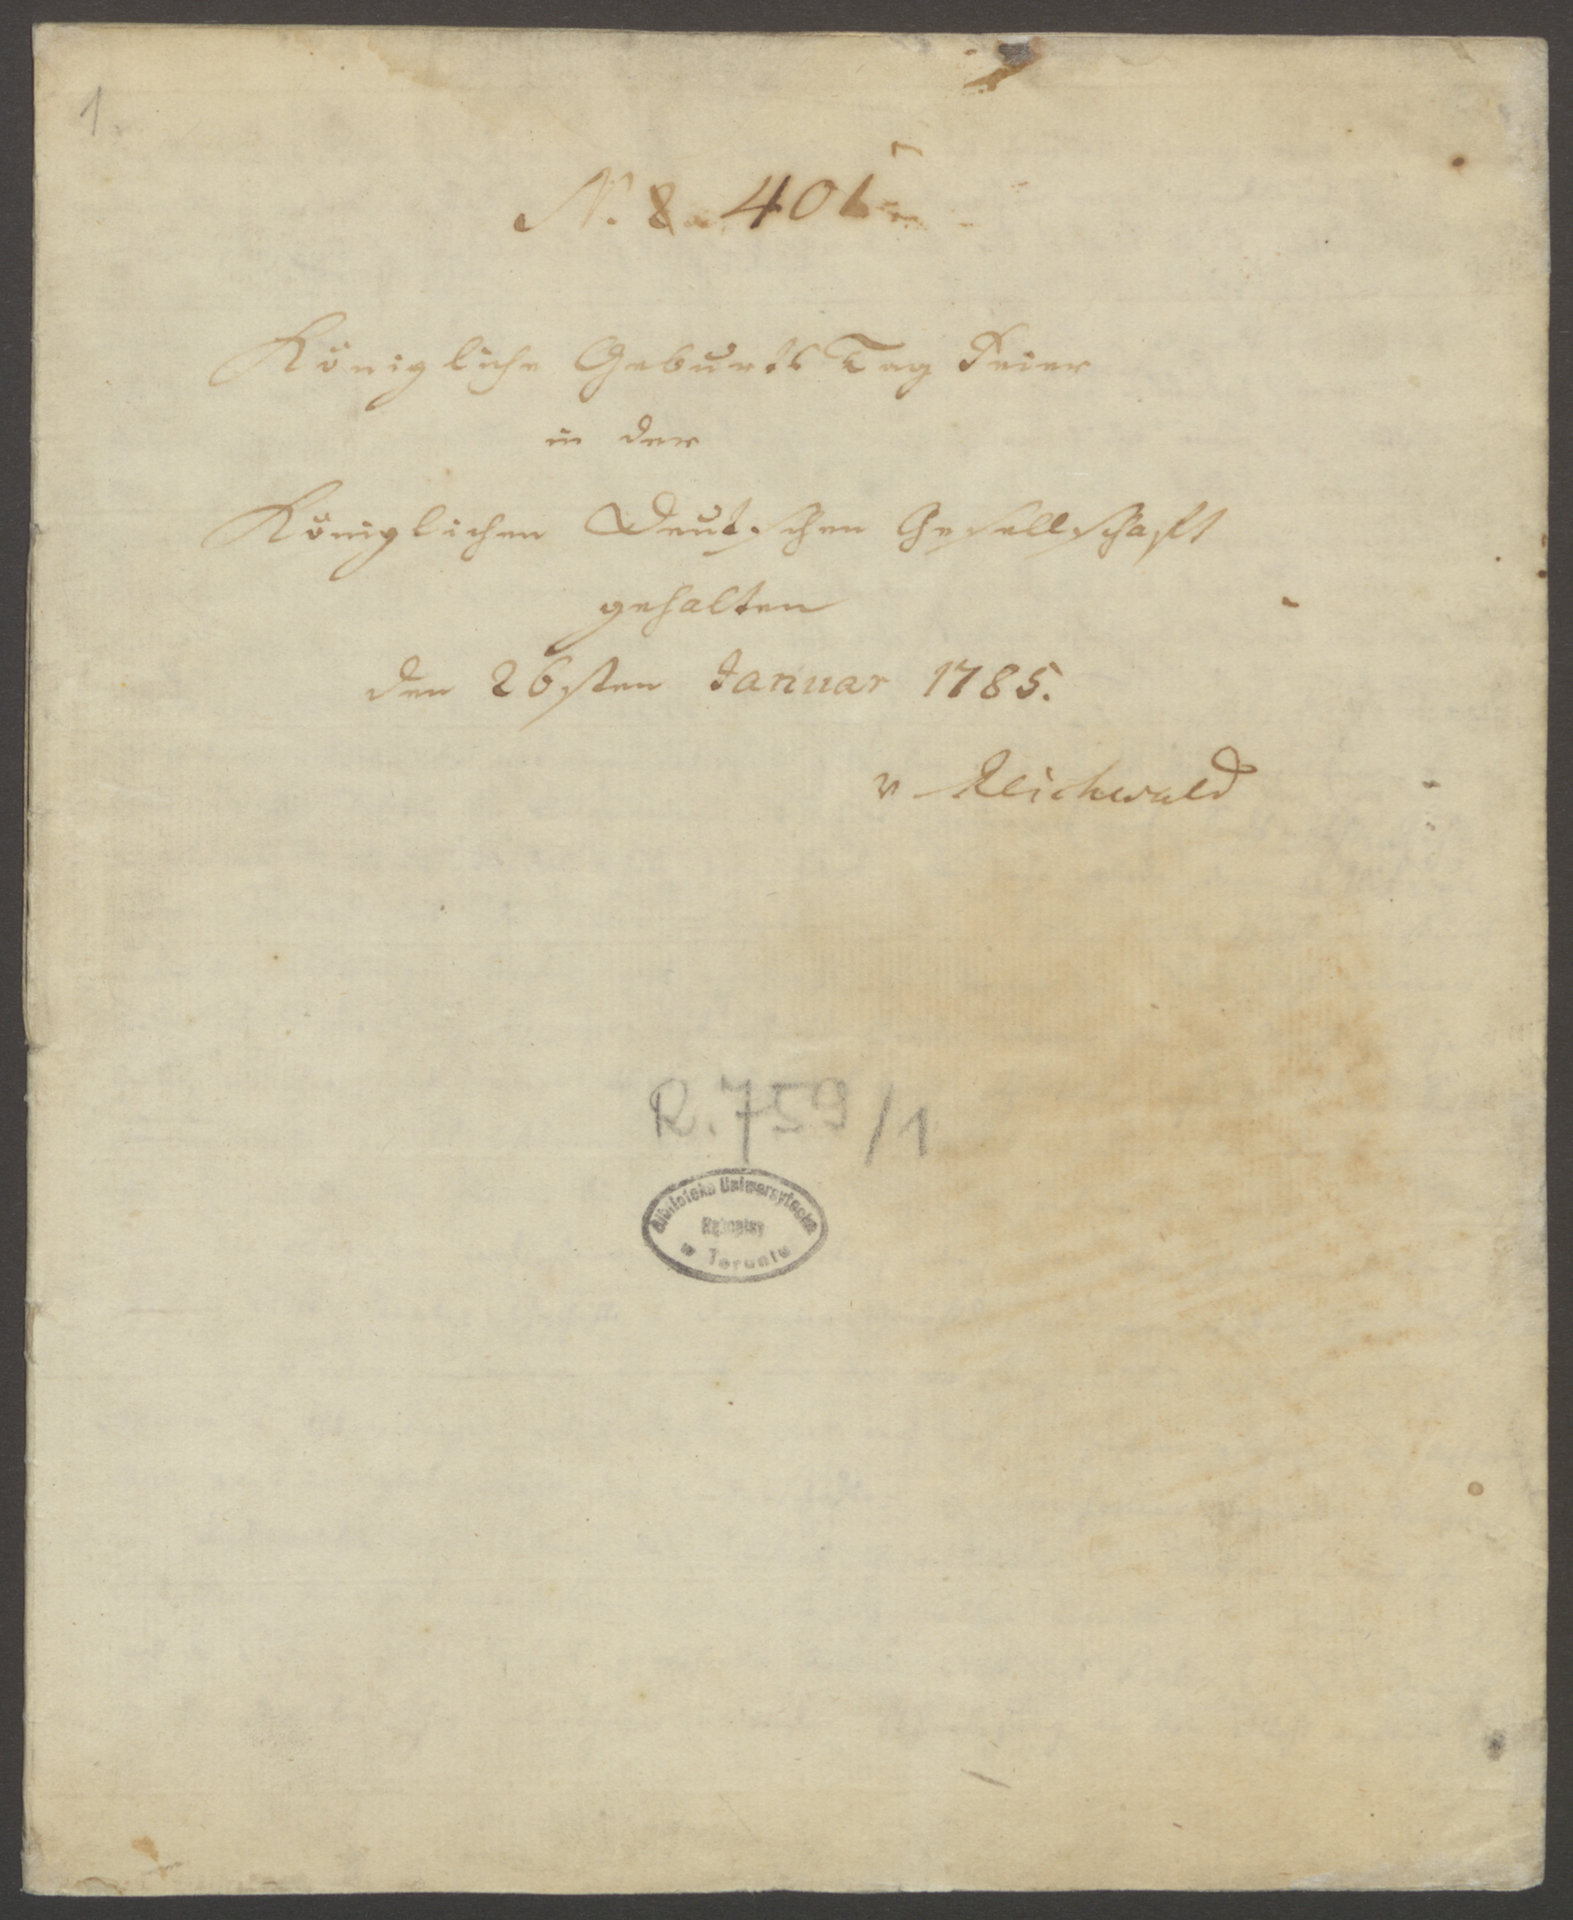 1.
N. 8. 401
Königliche Geburts Tag Feier
in der
Königlichen Deutschen Gesellschaft
gehalten
den 26sten Januar 1785.
v Reichwald
R. 759/1
Biblioteka Uniwersytecka
Rękopisy
w Toruniu